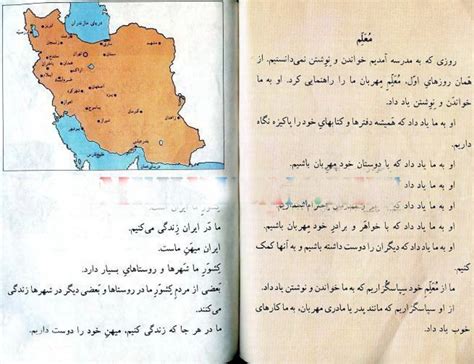 مُعَلِّم
روزی که به مدرسه آمدیم خواندن و نوشتن نمی‌دانستیم. از
همان روزهایِ اوّل، مُعَلِّمِ مهربان ما را راهنمایی کرد. او به ما
خواندن و نوشتن یاد داد.
او به ما یاد داد که همیشه دفترها و کتابهایِ خود را پاکیزه نگاه
داریم.
او به ما یاد داد که با دوستانِ خود مهربان باشیم.
او به ما یاد داد که به پدر و احترام بگذاریم
او به ما یاد داد که با خواهر و برادرِ خود مهربان باشیم.
او به ما یاد داد که دیگران را دوست داشته باشیم و به آنها کمک
کنیم.
ما از مُعَلِّمِ خود سپاسگزاریم که به ما خواندن و نوشتن یاد داد.
ما از او سپاسگزاریم که مانند پدر یا مادری مهربان، کارهایِ
خوب یاد داد.
دریای مازندران
تبریز
مشهد
تهران
همدان
اصفهان
اهواز
یاسوج
کرمان
زاهدان
شیراز
خلیج فارس
کشورِ ما ایران است.
ما در ایران زندگی می‌کنیم.
ایران میهنِ ماست.
کشورِ ما شهرها و روستاهایِ بسیار دارد.
بَعضی از مردمِ کشورِ ما در روستاها و بَعضی دیگر در شهرها زندگی
می‌کنند.
ما در هر جا که زندگی کنیم، میهنِ خود را دوست داریم.